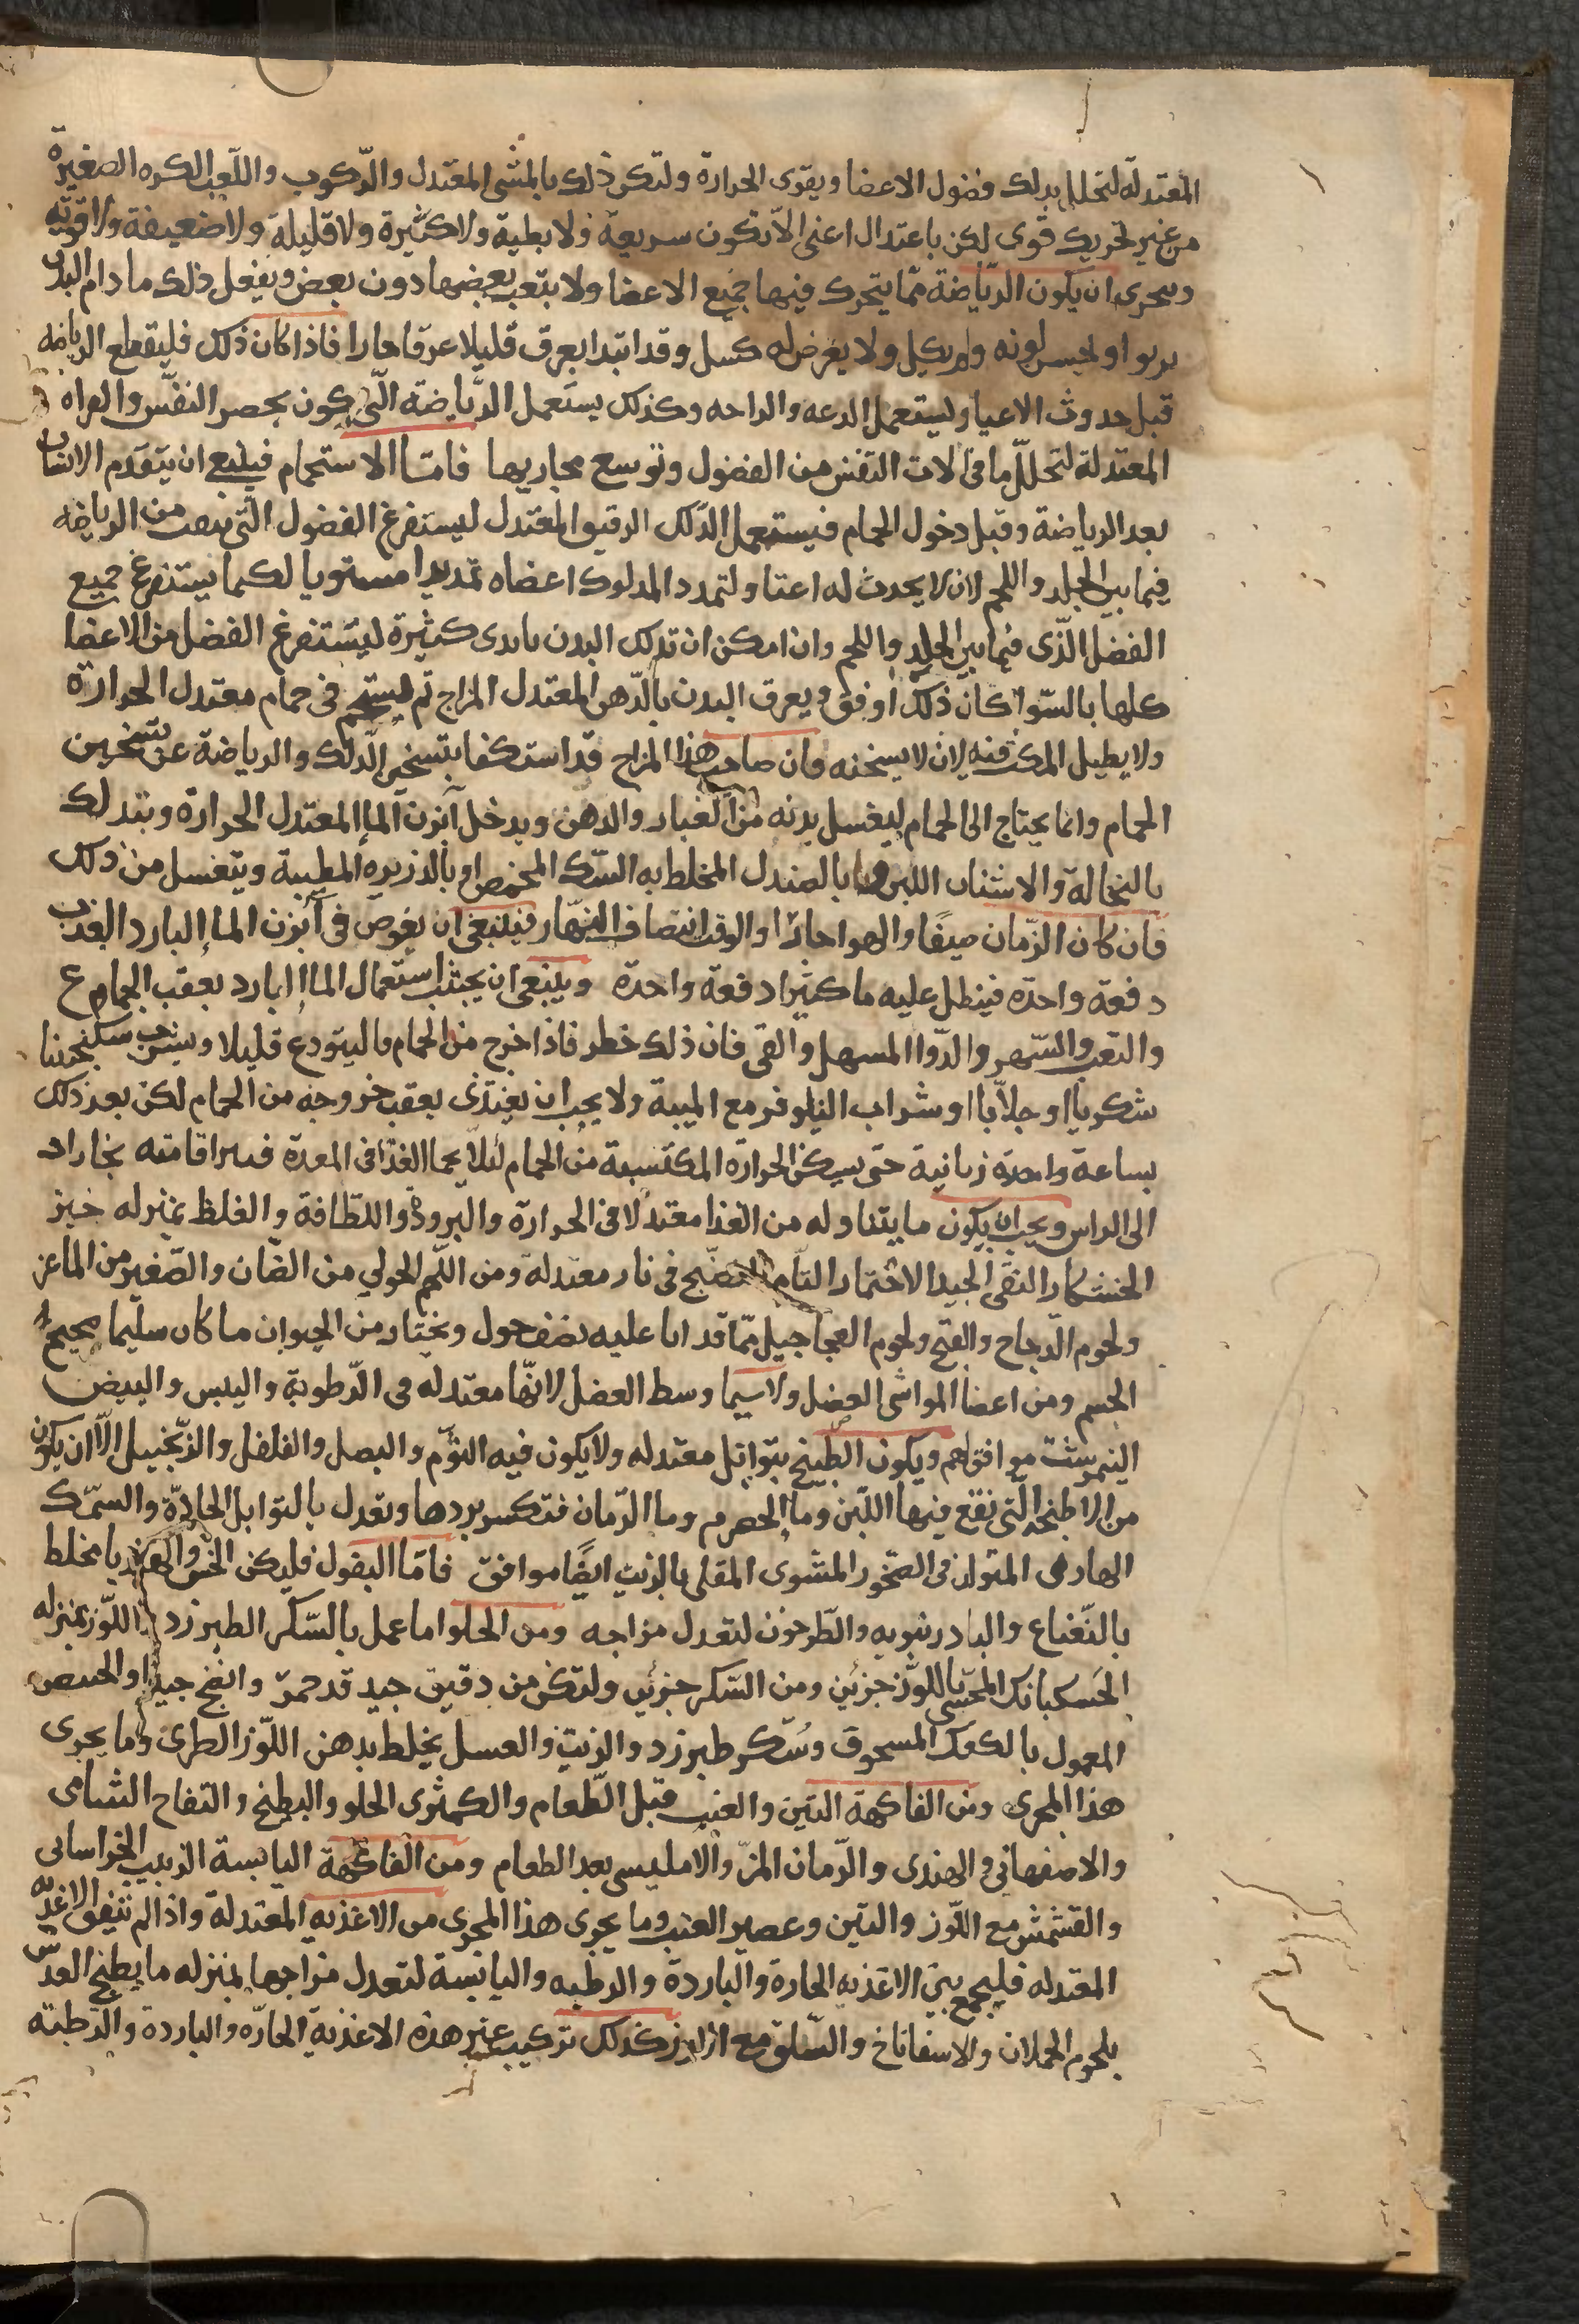 المعتدلة لتحلل بدلك فضول الاعضا ويقوى الحرارة ولتكن ذلك بالمشى المعتدل والركوب واللعب بالكره الصغيرة
من غير تحريك قوى لكن باعتدال اعنى الا تكون سريعة ولا بطية ولا كثيرة ولا قليلة ولا ضعيفة ولا قوية
ويتحرى ان يكون الرياضة مما يتحرك فيها جميع الاعضا ولا يتعب بعضها دون بعض ويفعل ذلك ما دام البدن
يربوا ولحسن لونه ولم يكل ولا يعرض له كسل وقد ابتدا يعرق قليلا عرقا حارا فاذا كان ذلك فليقطع الرياضه
قبل حدوث الاعيا وليستعمل الدعه والراحه وكذلك يستعمل الرياضة التى تكون بحصر النفس والقراه
المعتدلة لتحلل ما فى الات التنفس من الفضول وتوسع مجاريها فاما الاستحمام فينبغى ان يتقدم الانسان
بعد الرياضة وقبل دخول الحمام فيستعمل الدلك الرقيق المعتدل ليستفرغ الفضول التى من الرياضه
فيما بين الجلد واللحم لان لا يحدث له اعيا ولتمدد المدلوك اعضاه تمديدا مستويا لكيما يستفرغ جميع
الفضل الذى فيما بين الجلد واللحم وان امكن ان تدلك البدن بايدى كثيرة ليستفرغ الفضل من الاعضا
كلها بالسوا كان ذلك اوفق ويعرق البدن بالدهن المعتدل المزاج ثم يستحم فى حمام معتدل الحرارة
ولا يطيل المكث فيه لان لا يسخنه فان صاحب هذا المزاج قد استكفا بتسخين الدلك والرياضة عن تسخين
الحمام وانما يحتاج الى الحمام ليغسل بدنه من الغبار والدهن ويدخل آبزن الما المعتدل الحرارة ويتدلك
بالنخالة والاشنان اللين واما بالصندل المخلط به السك المحمص او بالذريره المطيبة ويتغسل من ذلك
فان كان الزمان صيفا والهوا حارا والوقت انتصاف النهار فينبغى ان يغوص فى آبزن الما البارد العذب
دفعة واحدة فينطل عليه ما كثيرا دفعة واحدة وينبغى ان يجتنب استعمال الما البارد بعقب الجماع
والتعب والسهر والدوا المسهل والقى فان ذلك خطر فاذا خرج من الحمام فاليتودع قليلا ويشرب سكنجبينا
سكريا او جلابا او شراب النيلوفر مع الميبة ولا يجب ان يغتذى بعقب خروجه من الحمام لكن بعد ذلك
بساعة واحدة زمانية حتى يسكن الحرارة المكتسبة من الحمام لئلا يحما الغذا فى المعدة بخارات
الى الراس ويجب ان يكون ما يتناوله من الغذا معتدلا فى الحرارة والبرودة واللطافة والغلظ بمنزله خبز
الخشكار النقى الجيد الاختمار التام النضج فى نار معتدلة ومن اللحم الحولي من الضان والصغير من الماعز
ولحوم الدجاج والقبج ولحوم العجاجيل مما قد اتا عليه نصف حول وتختار من الحيوان ما كان سليما صحيح
الجسم ومن اعضا المواشى العضل ولا سيما وسط العضل لانها معتدله فى الرطوبة واليبس والبيض
النيمرشت موافق لهم ويكون الطبيخ بتوابل معتدله ولا يكون فيه الثوم والبصل والفلفل والزنجبيل الا ان يكون
من الاطبخة التى تقع فيها اللبن وما الحصرم وما الرمان فتكسر بردها وتعدل بالتوابل الحادة والسمك
الهازبى المتولد فى الصخور المشوى المقلى بالزيت ايضا موافق فاما البقول فليكن الخس والهندبا مخلط
بالنعناع والبادرنبويه والطرخون لتعدل مزاجه ومن الحلوا ما عمل بالسكر الطبرزد واللوز بمنزله
الخسكبانك المحشى باللوز جزئين ومن السكر جزئين ولتكن من دقيق جيد قد خمر وانضج جيدا والخبيص
المعمول بالكعك المسحوق وسكر طبرزد والزيت والعسل يخلط بدهن اللوز الطرى وما يجرى
هذا المجرى ومن الفاكهة التين والعنب قبل الطعام والكمثرى الحلو والبطيخ والتفاح الشامى
والاصفهانى والهندى والرمان المز والامليسى بعد الطعام ومن الفاكهة اليابسة الزبيب الخراسانى
والقشمش مع اللوز والتين وعصير العنب وما يجرى هذا المجرى من الاغذيه المعتدلة واذا لم تتفق الاغذيه
المعتدله فليجمع بين الاغذيه الحارة والباردة والرطبه واليابسة لتعدل مزاجها بمنزله ما يطبخ العدس
بلحوم الحملان والاسفاناخ والسلق مع كذلك تركيب غير هذه الاغذية الحارة والباردة والرطبته